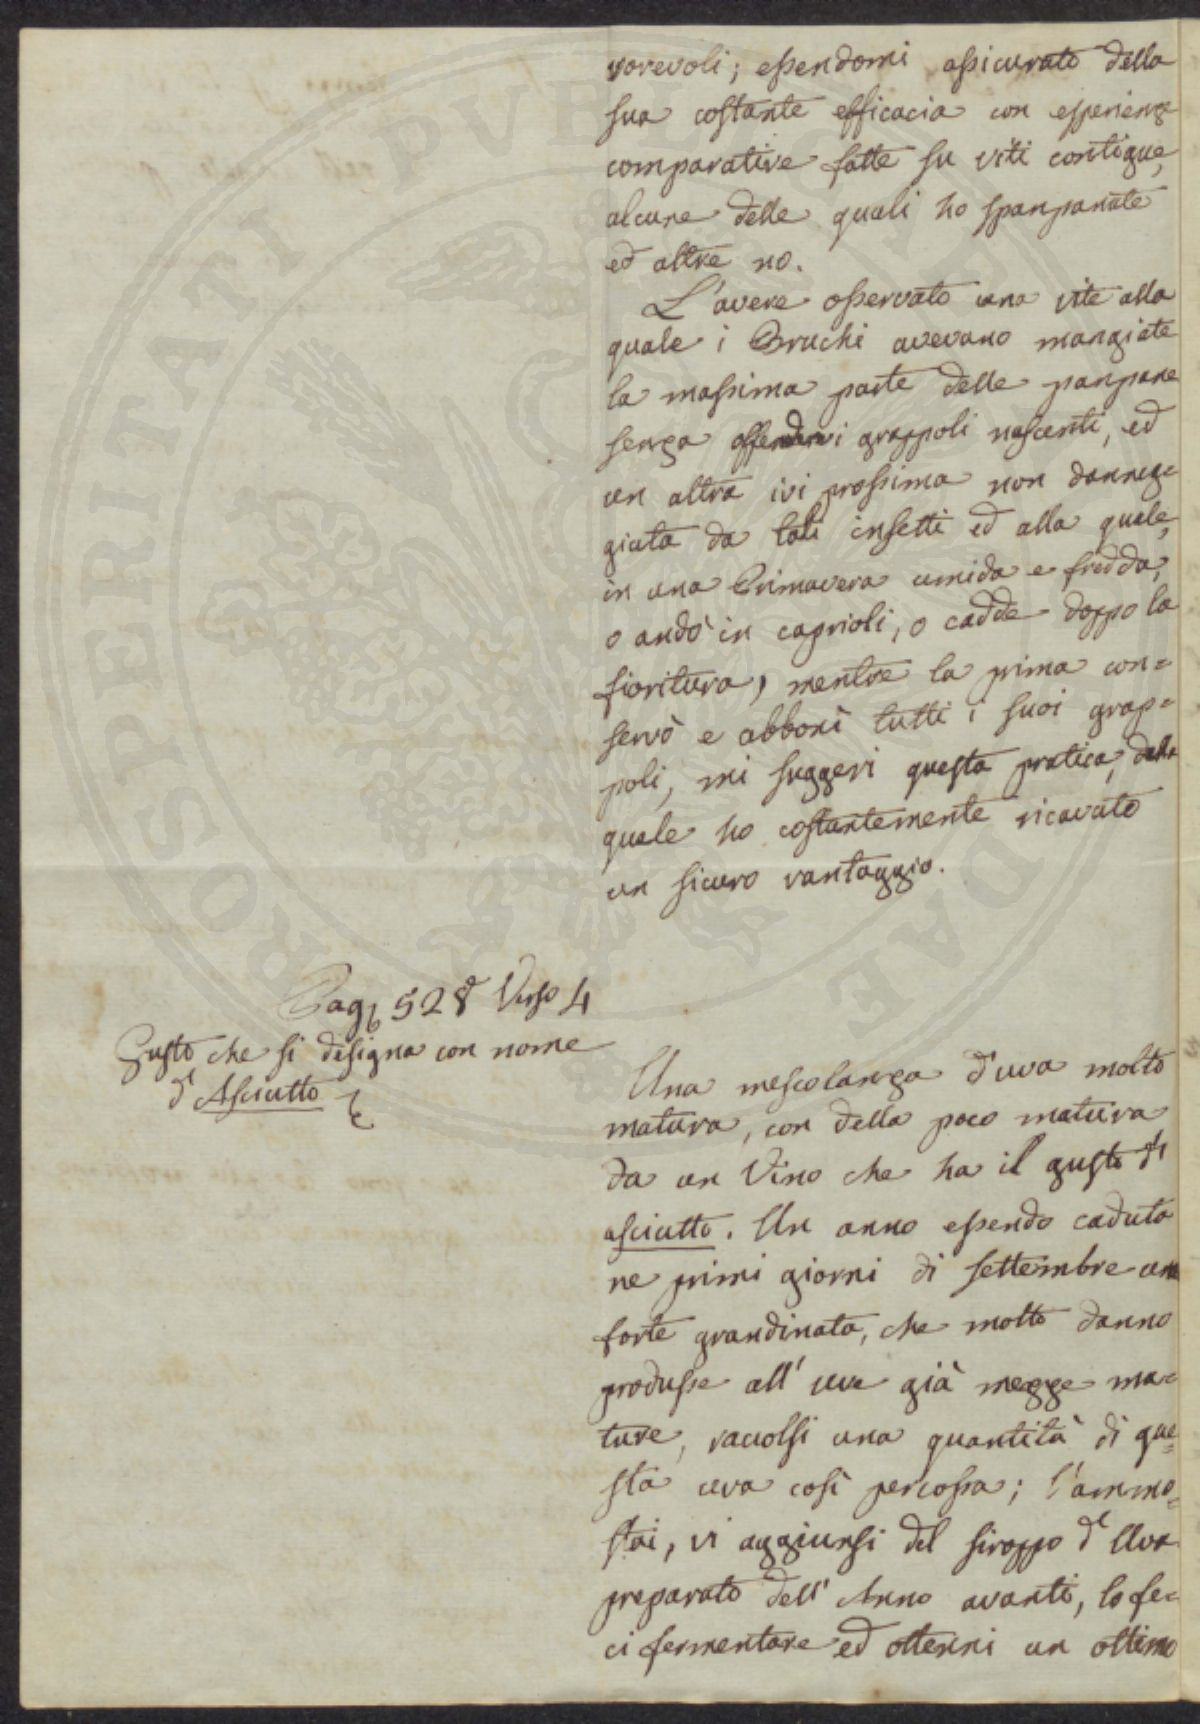 vorevoli; essendomi assicurato della
sua costante efficacia con esperienze
comparative fatte su viti contigue,
alcune delle quali ho spanpanate
ed altre no.
L'avere osservato una vite alla
quale i Bruchi avevano mangiate
la massima parte delle panpane
senza offender i grappoli nascenti, ed
un altra ivi prossima non danneg=
giata da tali insetti ed alla quale,
in una Primavera umida e fredda,
o andò in caprioli, o cadde doppo la
fioritura, mentre la prima con=
servò e abbonì tutti i suoi grap=
poli, mi suggerì questa pratica, dalla
quale ho costantemente ricavato
un sicuro vantaggio.
Pag. 528 Verso 4
Gusto che si designa con nome
d'Asciutto
Una mescolanza d'uva molto
matura, con della poco matura
da un Vino che ha il gusto di
asciutto. Un anno essendo caduta
ne primi giorni di settembre una
forte grandinata, che molto danno
produsse all'uve già mezze ma=
ture, racolsi una quantità di que=
sta uva così percossa; l'ammo=
stai, vi aggiunsi del siroppo d'Uva
preparato dell'Anno avanti, lo fe=
ci fermentare ed ottenni un ottimo
PROSPERITATI PVBLICAE AVGENDAE